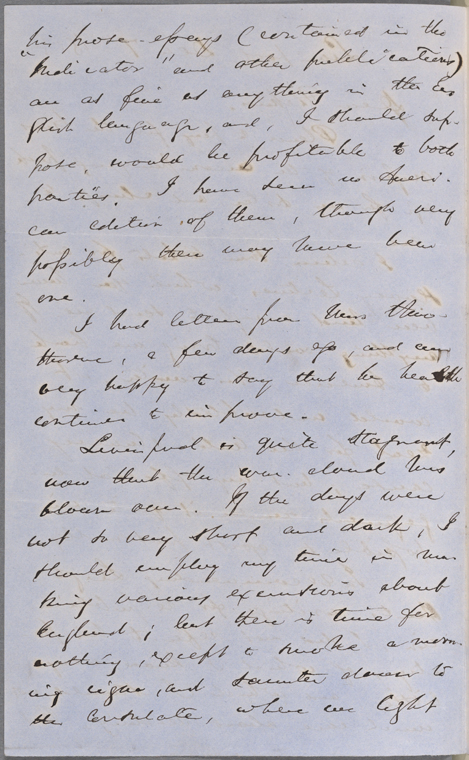 his prose-essays (contained in the
"Indicator" and other publications)
are as fine as anything in the En-
glish language, and, I should sup-
pose, would be profitable to both
parties. I have seen no Ameri-
can edition of them, though very
possibly there may have been
one.
I had letters from Mrs Haw-
thorne, a few days ago, and am
very happy to say that her health
continues to improve.
Liverpool is quite stagnant,
now that the war-cloud has
blown over. If the days were
not so very short and dark, I
should employ my time in ma-
king various excursions about
England; but there is time for
nothing, except to smoke a morn-
ing cigar, and saunter down to
the Consulate, where we light